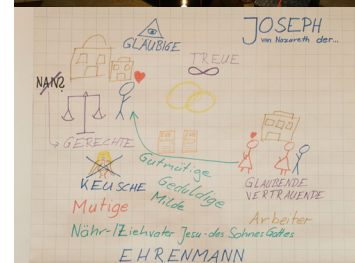 JOSEPH
von Nazareth der...
GLÄUBIGE
TREUE
GERECHTE
Gutmütige
KEUSCHE
Geduldige
Milde
GLAUBENDE
VERTRAUENDE
Mutige
Arbeiter
Nähr-/Ziehvater Jesu-des Sohnes Gottes
EHRENMANN